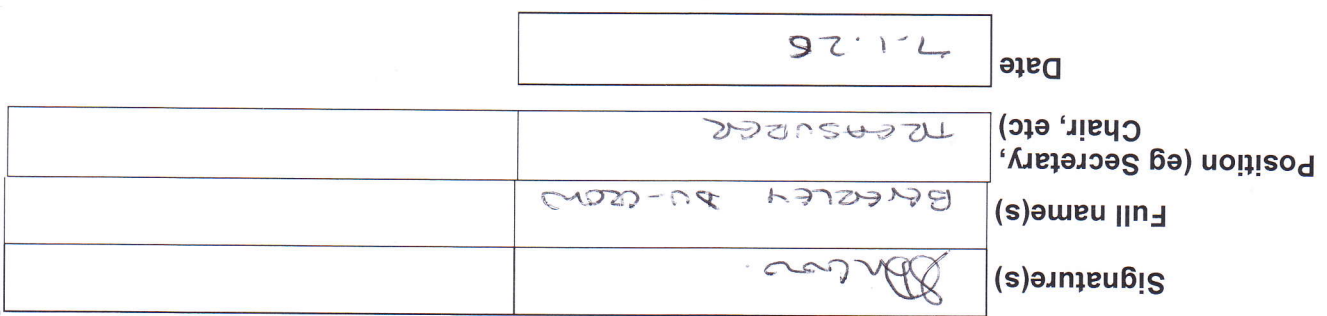 Signature(s)
Full name(s) BEVERLEY DU-CROW
Position (eg Secretary,
Chair, etc) TREASURER
Date 7.1.26